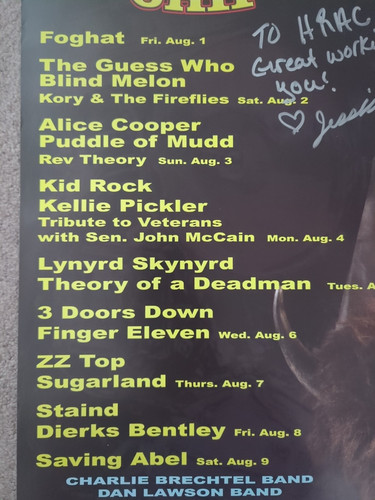 Foghat Fri. Aug. 1
TO HRAC
Great worki
you!
The Guess Who
Blind Melon
Kory & The Fireflies Sat. Aug. 2
Alice Cooper
Puddle of Mudd
Rev Theory Sun. Aug. 3
Kid Rock
Kellie Pickler
Tribute to Veterans
with Sen. John McCain Mon. Aug. 4
Lynyrd Skynyrd
Theory of a Deadman Tues. A
3 Doors Down
Finger Eleven Wed. Aug. 6
ZZ Top
Sugarland Thurs. Aug. 7
Staind
Dierks Bentley Fri. Aug. 8
Saving Abel Sat. Aug. 9
CHARLIE BRECHTEL BAND
DAN LAWSON BAND